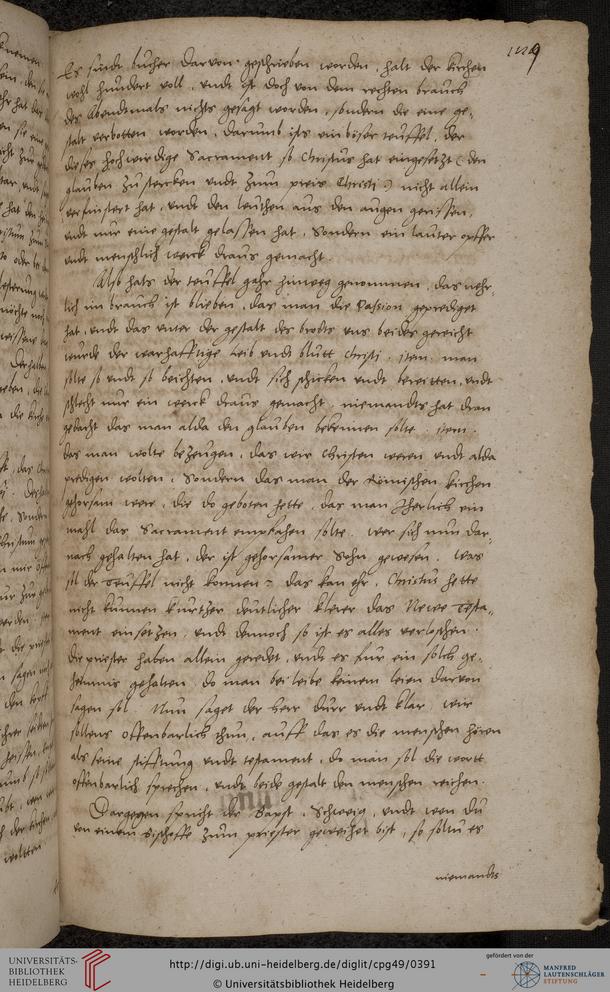 Es sindt bucher darvon geschrieben worden, halt der kirchen
wohl hundert voll, undt ist doch von dem rechten brauch
des Abendtmals nichts gesagt worden, sondern die eine ge-
stalt verbotten worden, darumb ists ein böser teuffel, der
dieses hochwirdige Sacrament so Christus hat eingesetzt (den
glauben zu stercken undt zum preis Christi) nicht allein
verfinstert hat, undt den leuthen aus den augen gerissen,
undt nur eine gestalt gelassen hat, Sondern ein lauter opffer
undt menschlich werck draus gemacht.
Also hats der teuffel gahr hinweg genommen, das nehr-
lich im brauch ist blieben, das man die Passion geprediget
hat, undt das unter der gestalt des brodts uns beides gereicht
wurde der warhafftige leib undt blutt Christi. item man
solte so undt so beichten, undt sich schicken undt bereitten, undt
schlecht nur ein werck draus gemacht, niemandts hat dran
gedacht das man alda den glauben bekennen solte. item.
das man wolte bezeugen, das wir Christen weren undt alda
predigen wolten, Sondern das man der Römischen kirchen
gehorsam were, die do geboten hette, das man Jherlich ein
mahl das Sacrament empfahen solte. wer sich nun dar-
nach gehalten hat, der ist gehorsamer Sohn gewesen. Was
sol der Teuffel nicht konnen? das kan ehr, Christus hette
nicht kunnen kurtzer deutlicher klerer das Newe Testa-
ment einsetzen, undt dennoch so ist es alles verloschen.
die priester haben allein geredet, undt es fur ein solch ge-
heimnis gehalten, do man bei leibe keinem leien darvon
sagen sol. Nun saget der herr durr undt klar, wir
sollens offenbarlich thun, auff das es die menschen hören
als seine stifftung undt testament, do man sol die wortt
offenbarlich sprechen, undt beide gestalt den menschen reichen.
Dargegen spricht der Bapst, Schweig, undt wen du
von einem Bischoffe zum priester geweihet bist, so soltu es
niemandts
UNIVERSITÄTS-
BIBLIOTHEK
HEIDELBERG
http://digi.ub.uni-heidelberg.de/diglit/cpg49/0391
© Universitätsbibliothek Heidelberg
gefördert von der
MANFRED
LAUTENSCHLÄGER
STIFTUNG